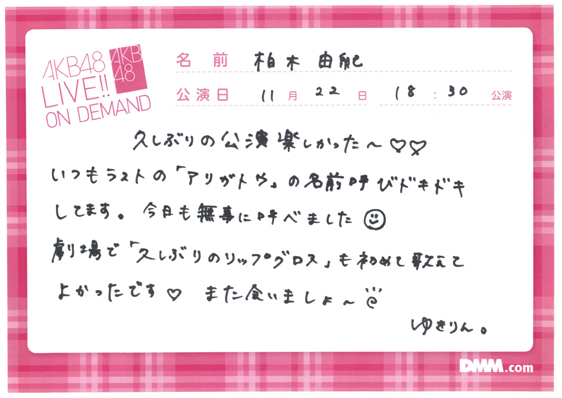 AKB48
LIVE!!
ON DEMAND
AKB
48
名前 柏木由紀
公演日 11月22日 18:30公演
久しぶりの公演楽しかった〜♡♡
いつもラストの「アリガトや」の名前呼びドキドキ
してます。今日も無事に呼べました☺
劇場で「久しぶりのリップグロス」も初めて歌えて
よかったです♡ また会いましょ〜
ゆきりん。
DMM.com